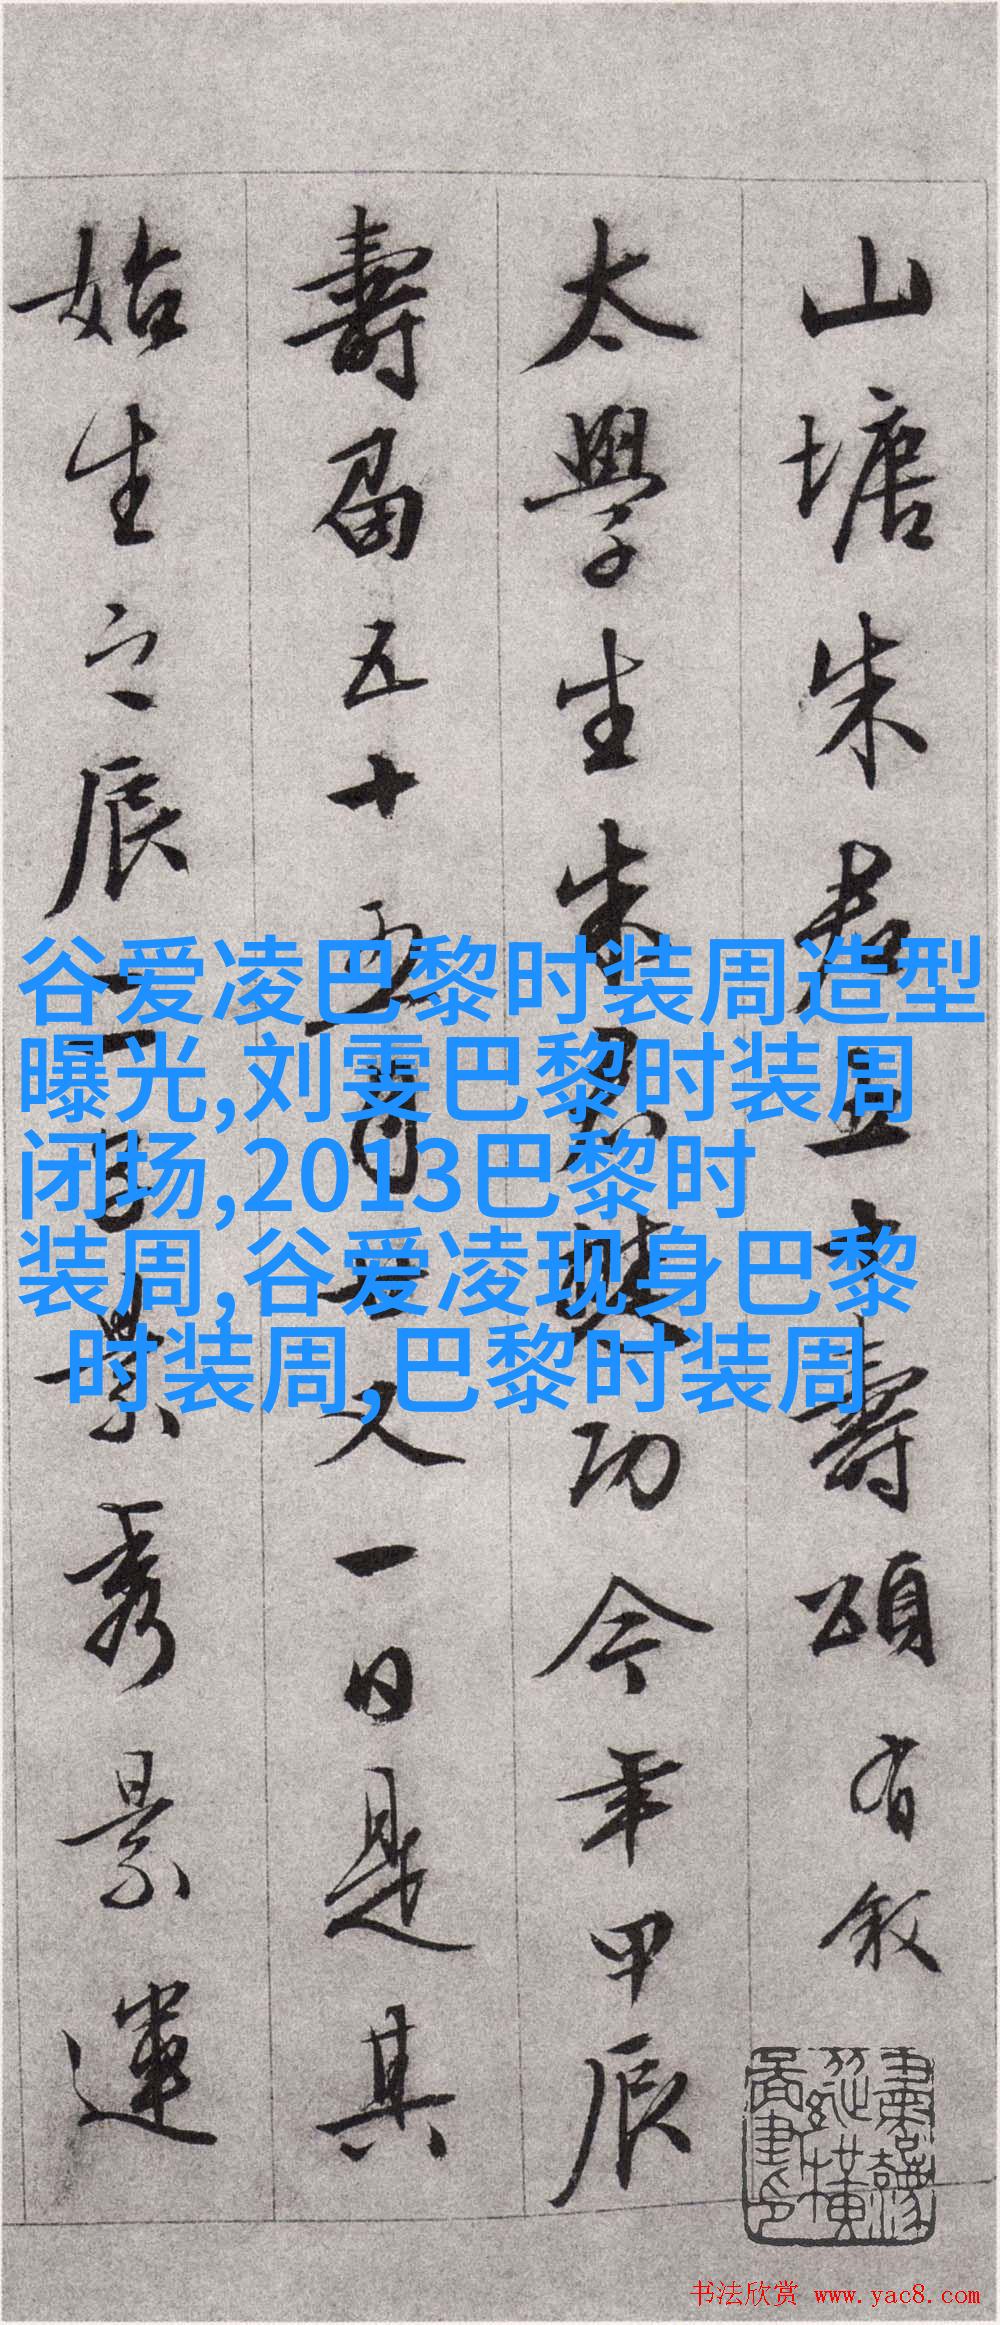 山塘朱君五十壽頌有敘
太學生朱君懋功今年甲辰
壽屆五十月又一日是其
始生之辰一日景秀景運
谷爱凌巴黎时装周造型
曝光,刘雯巴黎时装周
闭场,2013巴黎时
装周,谷爱凌现身巴黎
时装周,巴黎时装周
书法欣赏 www.yac8.com